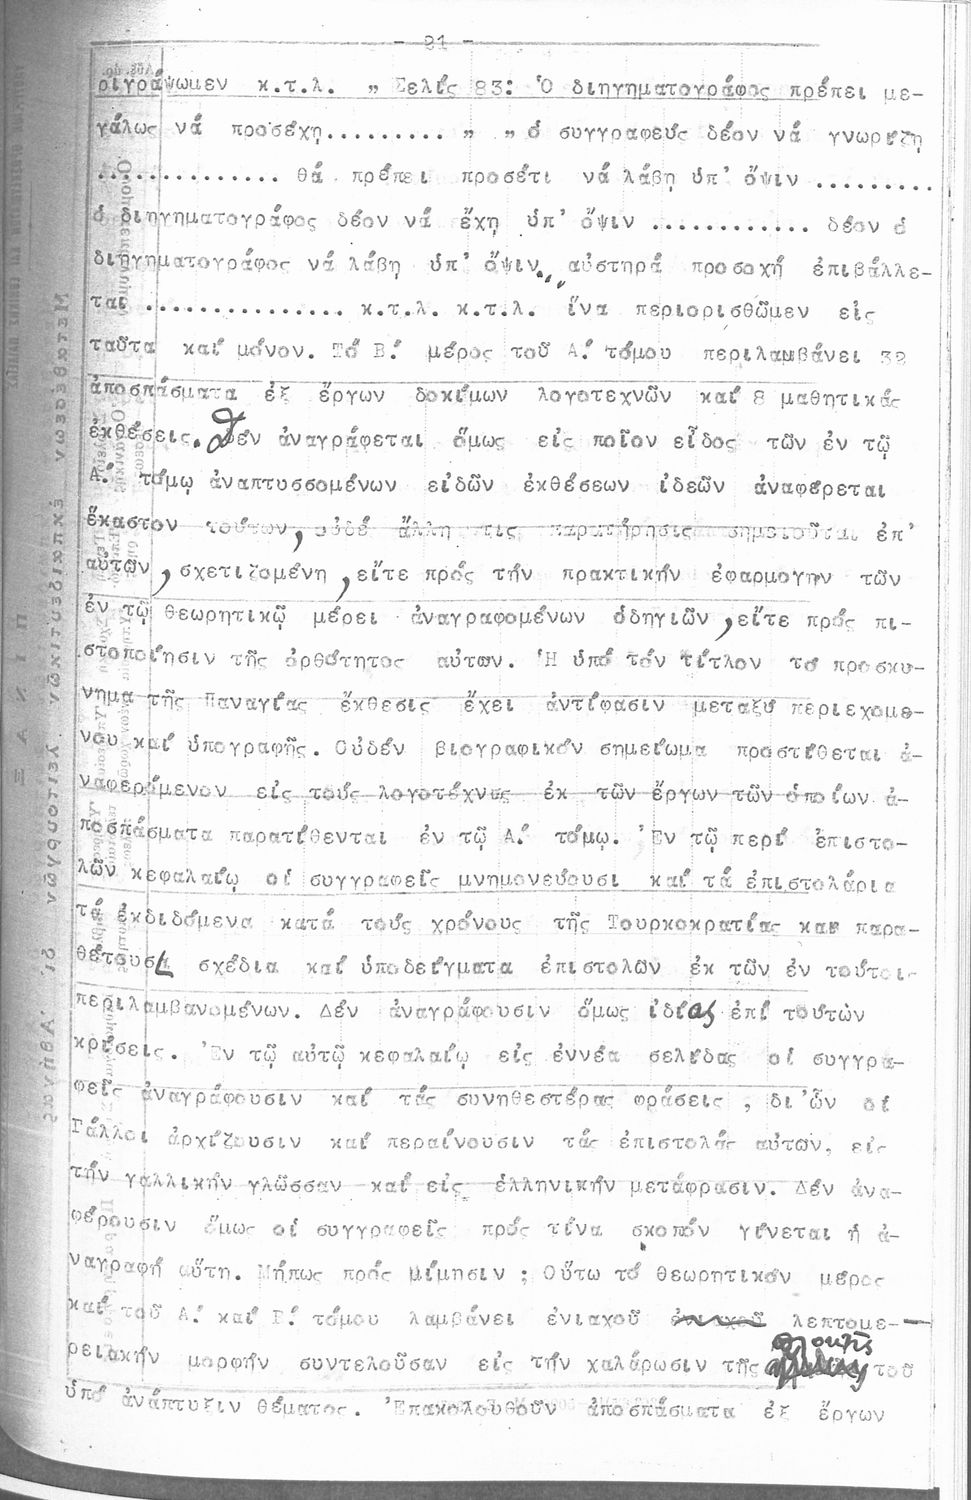 - 81 -
ριγράψωμεν κ.τ.λ. „ Σελίς 83: Ὁ διηγηματογράφος πρέπει με-
γάλως νά προσέχη......... „ „ ὁ συγγραφεύς δέον νά γνωρίζη
.............. θά πρέπει προσέτι νά λάβη ὑπ' ὄψιν .........
ὁ διηγηματογράφος δέον νά ἔχη ὑπ' ὄψιν ............ δέον ὁ
διηγηματογράφος νά λάβη ὑπ' ὄψιν „ αὐστηρά προσοχή ἐπιβάλλε-
ται ............... κ.τ.λ. κ.τ.λ. ἵνα περιορισθῶμεν εἰς
ταῦτα καί μόνον. Τό Β.΄ μέρος τοῦ Α.΄ τόμου περιλαμβάνει 32
ἀποσπάσματα ἐξ ἔργων δοκίμων λογοτεχνῶν καί 8 μαθητικάς
ἐκθέσεις. Δέν ἀναγράφεται ὅμως εἰς ποῖον εἶδος τῶν ἐν τῷ
Α.΄ τόμῳ ἀναπτυσσομένων εἰδῶν ἐκθέσεων ἰδεῶν ἀναφέρεται
ἕκαστον τούτων, οὐδέ ἄλλη τις παρατήρησις σημειοῦται ἐπ'
αὐτῶν, σχετιζομένη, εἴτε πρός τήν πρακτικήν ἐφαρμογην τῶν
ἐν τῷ θεωρητικῷ μέρει ἀναγραφομένων ὁδηγιῶν, εἴτε πρός πι-
στοποίησιν τῆς ὀρθότητος αὐτων. Ἡ ὑπό τόν τίτλον τό προσκυ-
νημα τῆς Παναγίας ἔκθεσις ἔχει ἀντίφασιν μεταξύ περιεχομέ-
νου καί ὑπογραφῆς. Οὐδέν βιογραφικόν σημείωμα προστίθεται ἀ-
ναφερόμενον εἰς τούς λογοτέχνας ἐκ τῶν ἔργων τῶν ὁποίων ἀ-
ποσπάσματα παρατίθενται ἐν τῷ Α.΄ τόμῳ. Ἐν τῷ περί ἐπιστο-
λῶν κεφαλαίῳ οἱ συγγραφεῖς μνημονεύουσι καί τά ἐπιστολάρια
τά ἐκδιδόμενα κατά τούς χρόνους τῆς Τουρκοκρατίας και παρα-
θέτουσι σχέδια καί ὑποδείγματα ἐπιστολῶν ἐκ τῶν ἐν τούτοι-
περιλαμβανομένων. Δέν ἀναγράφουσιν ὅμως ἰδίας ἐπί τούτων
κρίσεις. Ἐν τῷ αὐτῷ κεφαλαίῳ εἰς ἐννέα σελίδας οἱ συγγρα-
φεῖς ἀναγράφουσιν καί τάς συνηθεστέρας φράσεις , δι'ὧν οἱ
Γάλλοι ἀρχίζουσιν καί περαίνουσιν τάς ἐπιστολάς αὐτων, εἰς
τήν γαλλικήν γλῶσσαν καί εἰς ἑλληνικήν μετάφρασιν. Δέν ἀνα-
φέρουσιν ὅμως οἱ συγγραφεῖς πρός τίνα σκοπόν γίνεται ἡ ἀ-
ναγραφή αὕτη. Μήπως πρός μίμησιν ; Οὕτω τό θεωρητικόν μέρος
καί τοῦ Α.΄ καί Β.΄ τόμου λαμβάνει ἐνιαχοῦ ἐνιαχοῦ λεπτομε-
ρειακήν μορφήν συντελοῦσαν εἰς τήν χαλάρωσιν τῆς τοῦ
ὑπό ἀνάπτυξιν θέματος. Ἐπακολουθοῦν ἀποσπάσματα ἐξ ἔργων